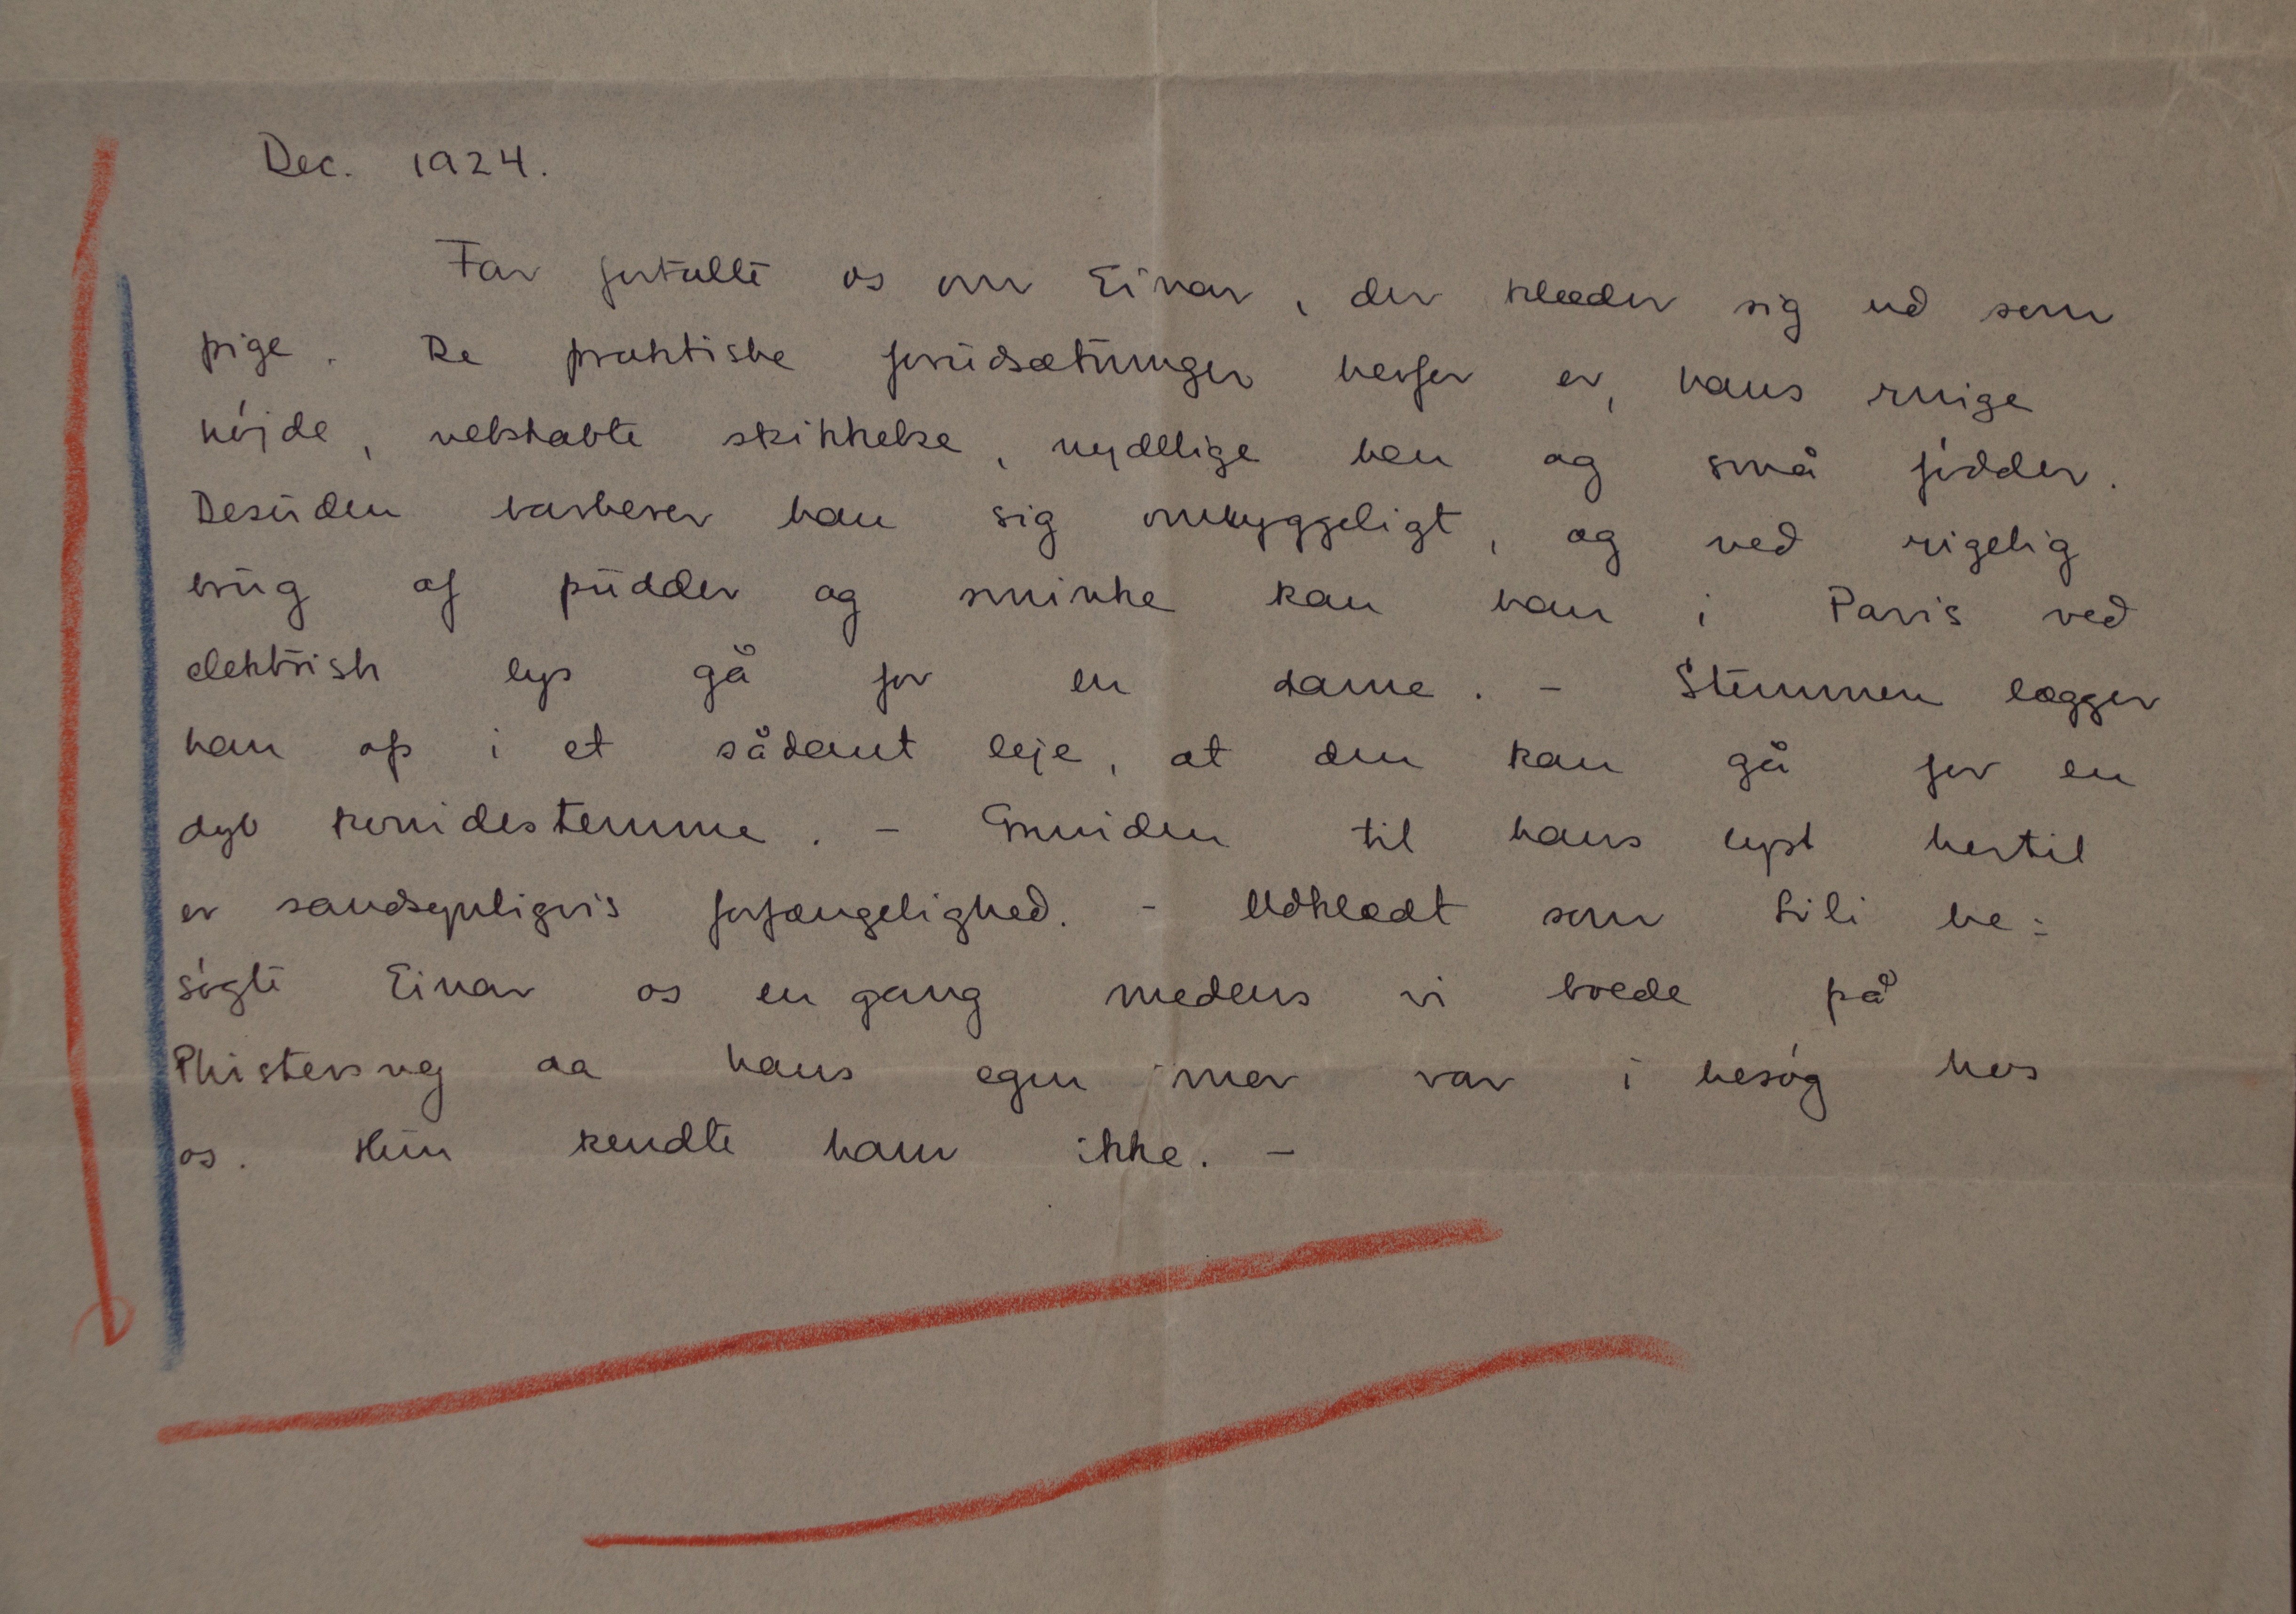 Dec. 1924.
Far fortalte os om Einar, der klæder sig ud som
pige. De praktiske forudsætninger herfor er, hans ringe
højde, velskabte skikkelse, nydelige ben og små fødder.
Desuden barberer han sig omhyggeligt, og ved rigelig
brug af pudder og sminke kan han i Paris ved
elektrisk lys gå for en dame. - Stemmen lægger
han op i et sådant leje, at den kan gå for en
dyb kvindestemme. - Grunden til hans lyst hertil
er sandsynligvis forfængelighed. - Udklædt som Lili be=
søgte Einar os en gang medens vi boede på
Phistersvej da hans egen mor var i besøg hos
os. Hun kendte ham ikke. -